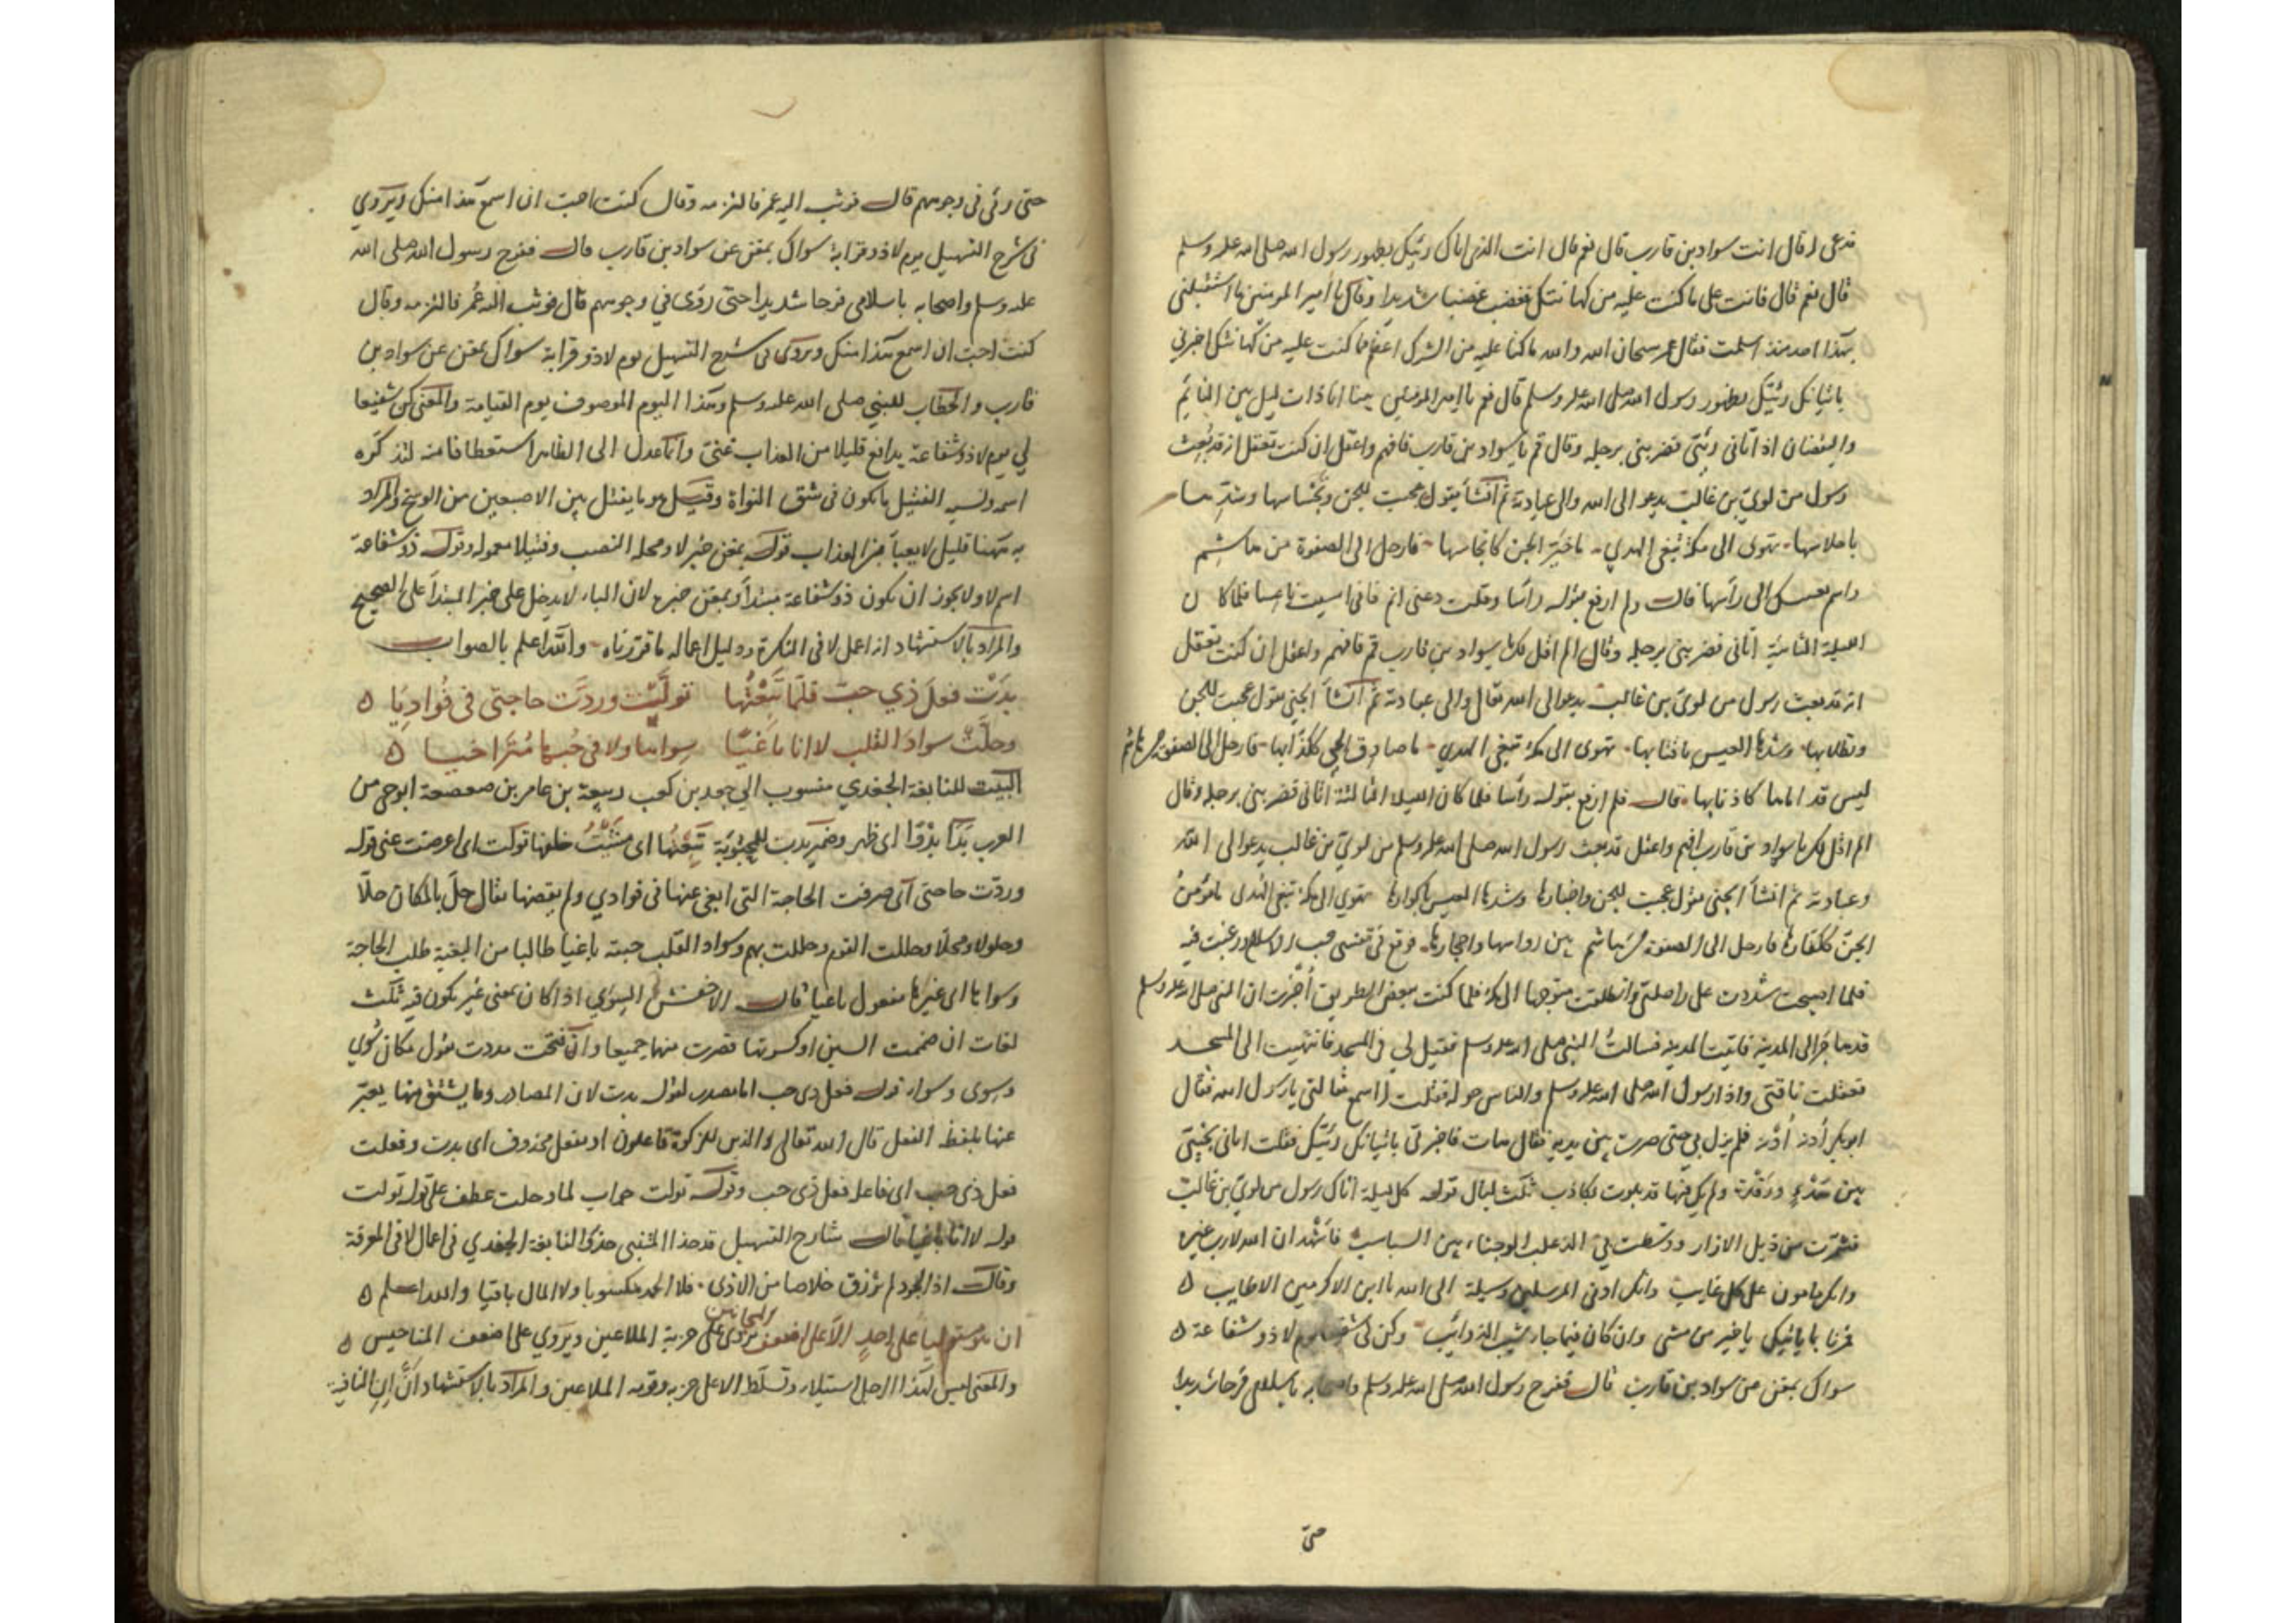 فدعى له قال انت سواد بن قارب قال نعم قال انت الذى اتاك رئيك بظهور رسول الله صلى الله عليه وسلم
قال نعم قال فانت على ما كنت عليه من كهانتك فغضب غضبا شديدا وقال يا أمير المومنين ما استقبلنى
بهذا احد منذ اسلمت فقال عمر سبحان الله والله ما كنا عليه من الشرك اعظم مما كنت عليه من كهانتك اخبرنى
باتيانك رئيك بظهور رسول الله صلى الله عليه وسلم قال نعم يا امير المومنين بينا انا ذات ليل بين النائم
واليقضان اذ اتانى رئيى فضربنى برجله وقال قم يا سواد بن قارب فافهم واعقل ان كنت تعقل انه قد بُعِث
رسول من لويّ بن غالب يدعو الى الله والى عبادته ثم انشأ يقول عجبت للجن وتجساسها وشدّها
باحلاسها تهوى الى مكة تبغى الهدي ما خيّر الجن كانجاسها فارحل الى الصفوة من هاشم
واسم بعينيك الى رأسها قال ولم ارفع بقوله رأسا وقلت دعنى انم فانى امسيت ناعسا فلما كان
الليلة الثانية أتانى فضربنى برجله وقال الم اقل لك يا سواد بن قارب قم فافهم واعقل ان كنت تعقل
انه قد بعث رسول من لوىّ بن غالب يدعو الى الله تعالى والى عبادته ثم انشأ الجنى يقول عجبت للجن
وتطلابها وشدها العيس باقتابها تهوى الى مكة تبغى الهدي ما صادق الجن ككذّابها فارحل الى الصفوة من هاشم
ليس قداماها كاذنابها قال فلم ارفع بقوله رأسا فلما كان الليلة الثالثة أتانى فضربنى برجله وقال
الم اقل لك يا سواد بن قارب افهم واعقل قد بعث رسول الله صلى الله عليه وسلم من لويّ بن غالب يدعو الى الله
وعبادته ثم انشأ الجنى يقول عجبت للجن واخبارها وشدها العيس باكوارها تهوي الى مكة تبغى الهدى ما مؤمنُ
الجنّ ككفارها فارحل الى الصفوة من هاشم بين روابيها واحجارها فوقع فى نفسى حب الاسلام ورغبت فيه
فلما اصبحت شددت على راحلتى وانطلقت متوجها الى مكة فلما كنت ببعض الطريق أُخبرت ان النبى صلى الله عليه وسلم
قد هاجر الى المدينة فاتيت المدينة فسالتُ النبى صلى الله عليه وسلم فقيل لي فى المسجد فانتهيت الى المسجد
فعقلت ناقتى واذا رسول الله صلى الله عليه وسلم والناس حوله فقلت اسمع مقالتى يا رسول الله فقال
ابو بكر أدنه أدنه فلم يزل بي حتى صرت بين يديه فقال هات فاخبرنى باتيانك رئيك فقلت اتانى نجيّى
بين هَدْءٍ ورَقْدة ولم يك فيها قد بلوت بكاذب ثلث ليال قوله كل ليلة اتاك رسول من لويّ بن غالب
فشمّرت من ذيل الازار ووسّطت بي الذعلب الوجناء بين السباسب فاشهد ان الله لا رب غيره
وانك مامون على كل غايب وانك ادنى المرسلين وسيلة الى الله يا ابن الاكرمين الاطايب ه
فمرنا بما ياتيك يا خير من مشى وان كان فيما جاء شيب الذوائب وكن لى شفيعا يوم لا ذو شفاعة ه
سواك بمغن عن سواد بن قارب قال ففرح رسول الله صلى الله عليه وسلم واصحابه باسلامى فرحا شديدا
حتى
حتى رئى فى وجوههم قال فوثب اليه عمر فالتزمه وقال كنت احب ان اسمع هذا منك ويروي
فى شرح التسهيل يوم لا ذو قرابة سواك بمغن عن سواد بن قارب قال ففرح رسول الله صلى الله
عليه وسلم واصحابه باسلامى فرحا شديدا حتى روَى في وجوههم قال فوثب اليه عُمر فالتزمه وقال
كنت احبّ ان اسمع هذا منك ويروى فى شرح التسهيل يوم لا ذو قرابة سواك بمغن عن سواد بن
قارب والخطاب للنبي صلى الله عليه وسلم وهذا اليوم الموصوف يوم القيامة والمعنى كن شفيعا
لي يوم لا ذو شفاعة يدافع قليلا من العذاب عنى وانما عدل الى الظاهر استعطافا منه لتذكره
اسمه ونسبه الفتيل ما يكون فى شق النواة وقيل هو ما يفتل بين الاصبعين من الوسخ والمراد
به ههنا قليل لا يعبأ من العذاب قوله بمغن خبر لا ومحله النصب وفتيلا معموله وقوله ذو شفاعة
اسم لا ولا يجوز ان يكون ذو شفاعة مبتدأ وبمغن خبره لان الباء لا يدخل على خبر المبتدأ على الصحيح
والمراد بالاستشهاد انه اعمل لا فى النكرة ودليل اعماله ما قررناه والله اعلم بالصواب
بدَتْ فعلَ ذي حبّ فلمّا تَبِعْتُها تولّت وردّت حاجتى فى فُوادِيَا ه
وحلّت سوادَ القلب لا انا باغيًا سِواها ولا فى حُبها مُتَراخيا ه
البيت للنابغة الجعدي منسوب الى جعد بن كعب ربيعة بن عامر بن صعصعة ابو حى من
العرب بَدَا بُدُوّا اى ظهر وضمير بدت للمحبوبة تَبِعْتُها اى مشيتُ خلفها تولت اى اعرضت عنى قوله
وردّت حاجتى أى صرفت الحاجة التى ابغى عنها فى فوادي ولم يقضها يقال حلّ بالمكان حلّا
وحلولا ومحلّا وحللت القوم وحللت بهم وسواد القلب حبته باغيا طالبا من البغية طلب الحاجة
وسواها اى غيرها مفعول باغيا قال الاخفش السِوَي اذا كان بمعنى غير يكون فيه ثلث
لغات ان ضممت السين او كسرتها قصرت منها جميعا وان فتحت مددت يقول مكان سُوي
وسِوى وسواء قوله فعل ذى حب اما مصدر لقوله بدت لان المصادر وما يشتق منها يعبّر
عنها بلفظ الفعل قال الله تعالى والذين للزكوة فاعلون او بفعل محذوف اى بدت وفعلت
فعل ذى حب اى فاعله فعل ذى حب وقوله تولت جواب لما وحلت عطف على قوله تولت
قوله لا انا باغيا قال شارح التسهيل قد حذا المتنبى حذو النابغة الجعدي فى اعمال لا فى المعرفة
وقال اذا الجود لم يُرزق خلاصا من الاذى فلا الحمد مكسوبا ولا المال باقيا والله اعلم ه
ان هو مستوليا على احدٍ الّا على اضعف المجانين يروى على حزبه الملاعين ويروي على اضعف المناحيس ه
والمعنى ليس لهذا الرجل استيلاء وتسلّط الا على حزبه وقومه الملاعين والمراد بالاستشهاد أنّ إن النافية